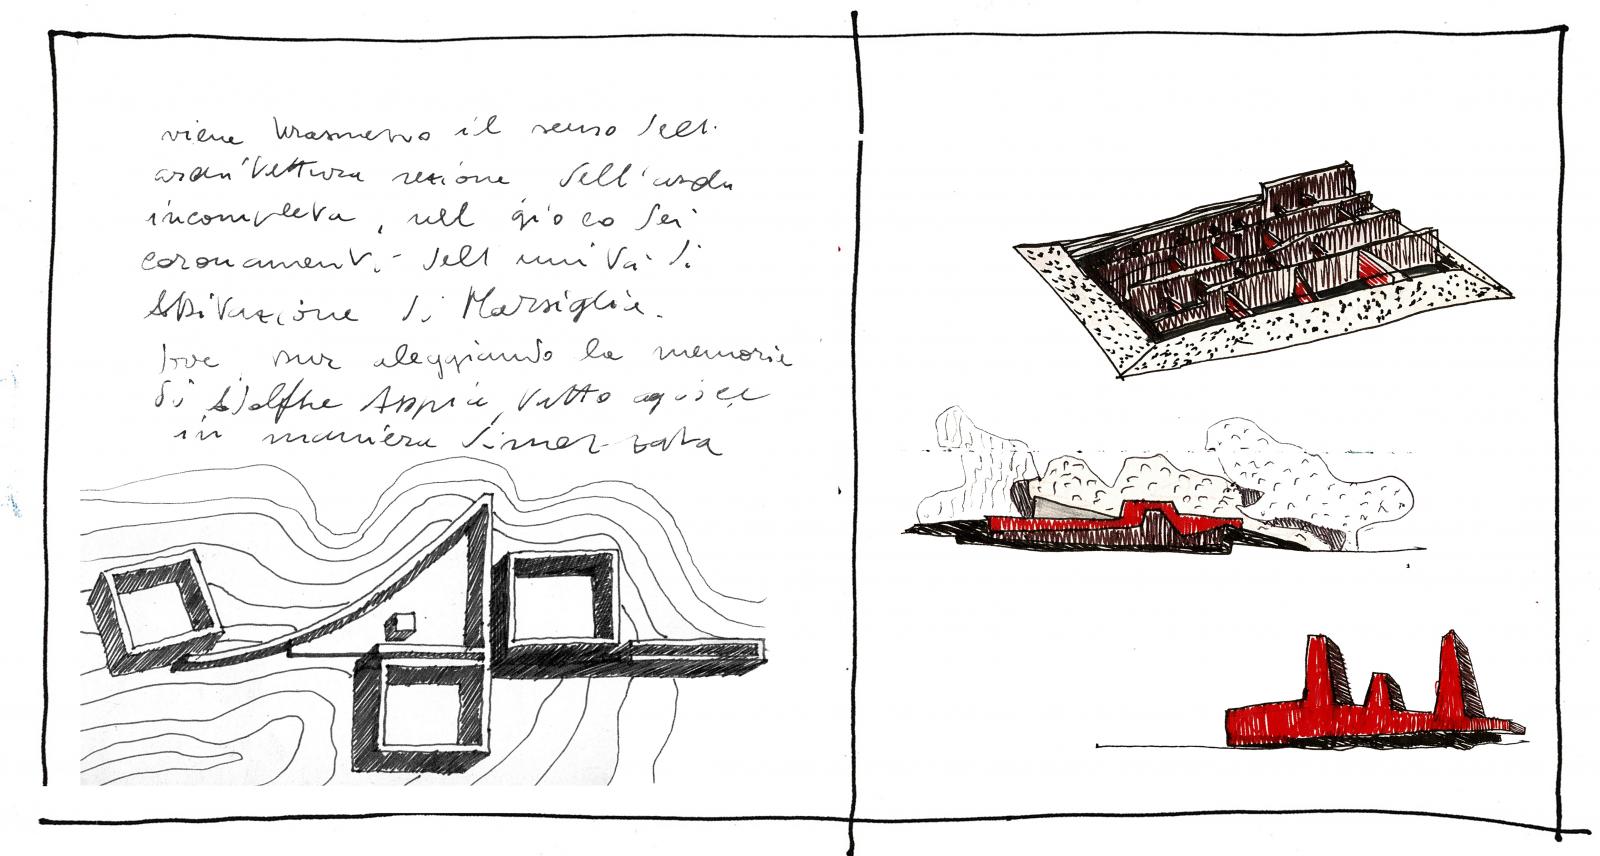 viene trasmesso il senso dell'
architettura sezione dell'archi
incompleta, nel gioco dei
coronamenti - dell unità di
abitazione di Marsiglia.
dove, pur aleggiando la memoria
di Adolphe Appia, tutto agisce
in maniera